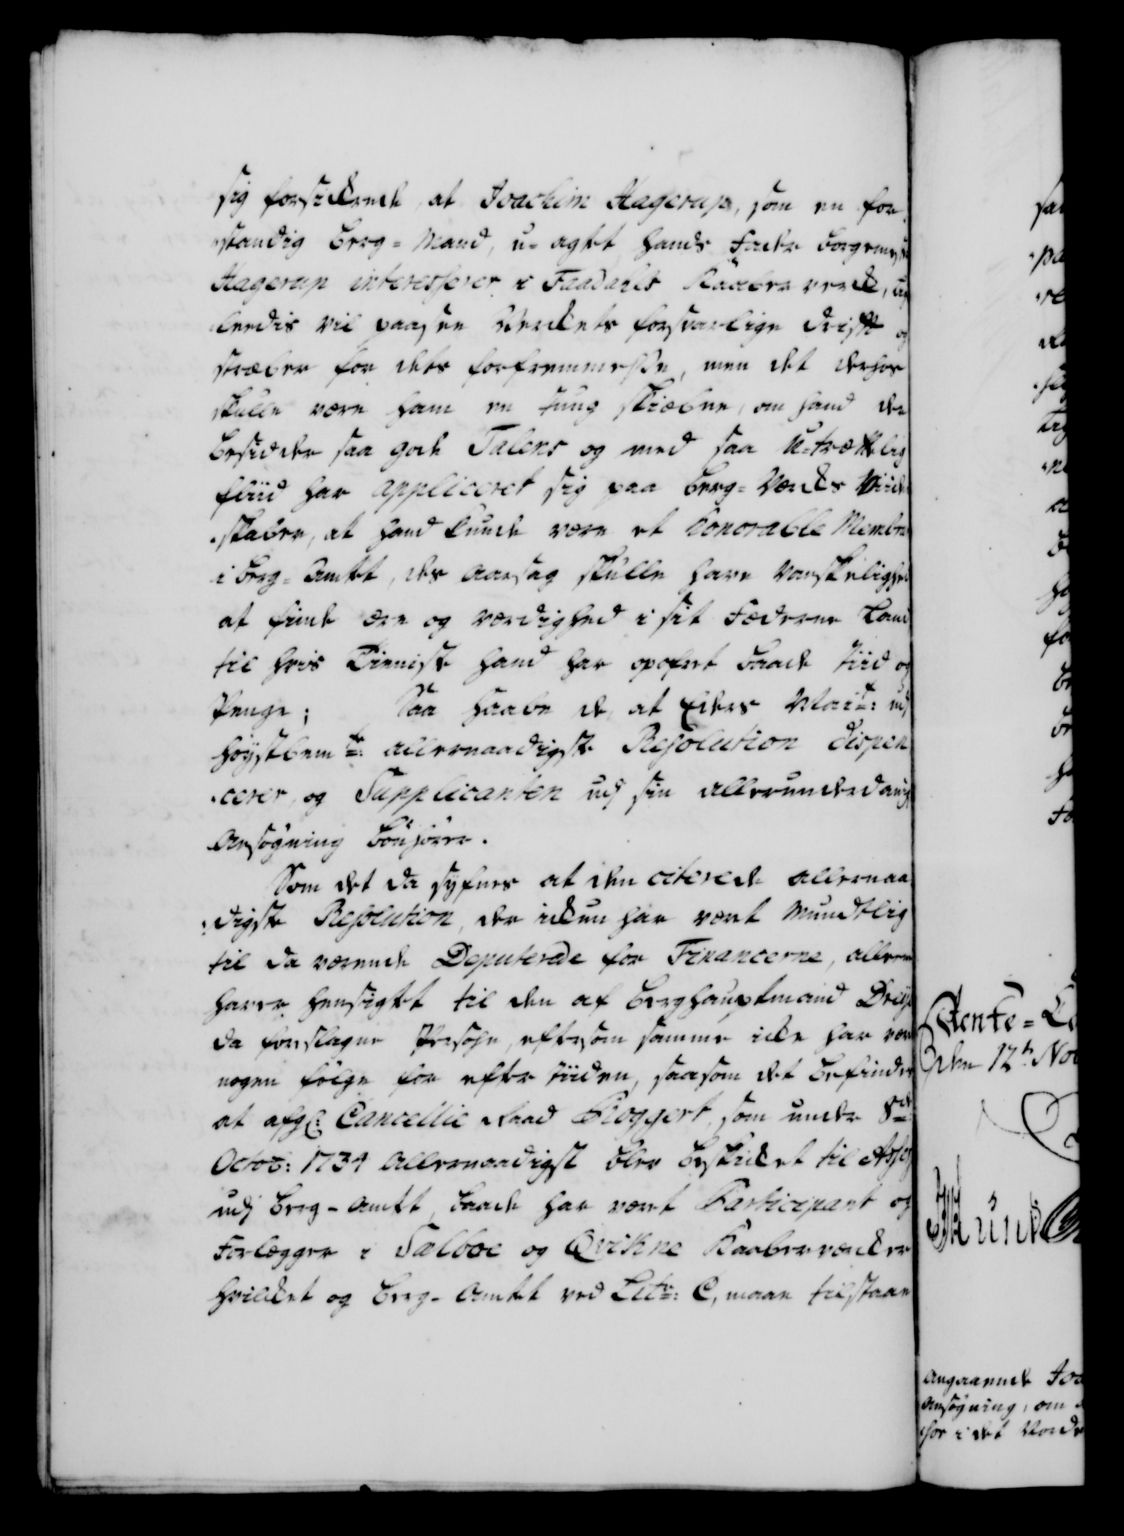 sig forsikrede, at Joachim Hagerup, som en for-
standig Berg-Mand, u-agtet hands Fader Borgemester
Hagerup interesserer i Faadahls Kaaber verck,
leedis vil paasee Verckets forsvarlige drifft og
stræber for dets forfremmelse, men det derhos
skulle være ham en tung skiæbne, om hand der
besidder saa gode Talens og med saa U-trættelig
fliid har appliceret sig paa Berg-Værcks Viiden
-skaber, at hand kunde være et honorable Membre
i Berg-Amtet, der aarsag skulle have Vanskelighed
at finde ære og værdighed i sit Fæderne Land
til hvis Tienniste hand har opofret baade tiid og
Penge; Saa haabe de, at Eders Maitt: udj
høystbemte: allernaadigste Resolution dispen
-cerer, og Supplicanten udj sin allerunderdanigste
Ansøgning bønhører.
Som det da synes at den citerede allernaa
-digste Resolution, der ickun har været Mundtlig
til da værende Deputerede for Financerne, allene
haver hensigtet til den af Berghauptmand
da foreslagne Persohn, eftersom samme icke har været
nogen følge for efter tiiden, saasom det befindes
at afg: Cancellie Raad Ploggert, som under 8de
Octob: 1734 Allernaadigst blev beskicket til Assess
udj Berg-Amtet, baade har været Participant og
Forlegger i Sælboe og Qvikne Kaaberværcker
hvilcket og Berg-Amtet ved Litr: C, maae tilstaae
Rente-
den 12te Nov
Angaaende Joa
Ansøgning, om